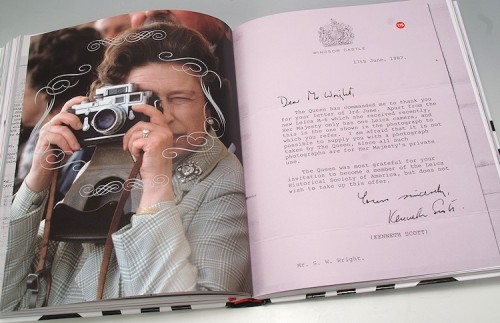 WINDSOR CASTLE
17th June, 1987.
Dear Mr Wright,
The Queen has commanded me to thank you
for your letter of 1st June. Apart from the
new Leica M.6 which she received recently,
Her Majesty only has one Leica camera, and
this is the one shown in the photograph to
which you refer. I am afraid it is not
possible to supply you with a photograph
taken by The Queen, since all such
photographs are for Her Majesty's private
use.
The Queen was most grateful for your
invitation to become a member of the Leica
Historical Society of America, but does not
wish to take up this offer.
Yours sincerely,
Kenneth Scott.
(KENNETH SCOTT)
Mr. D. W. Wright.